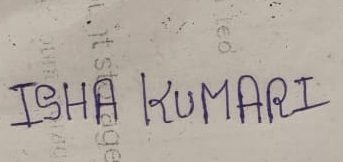 ISHA KUMARI